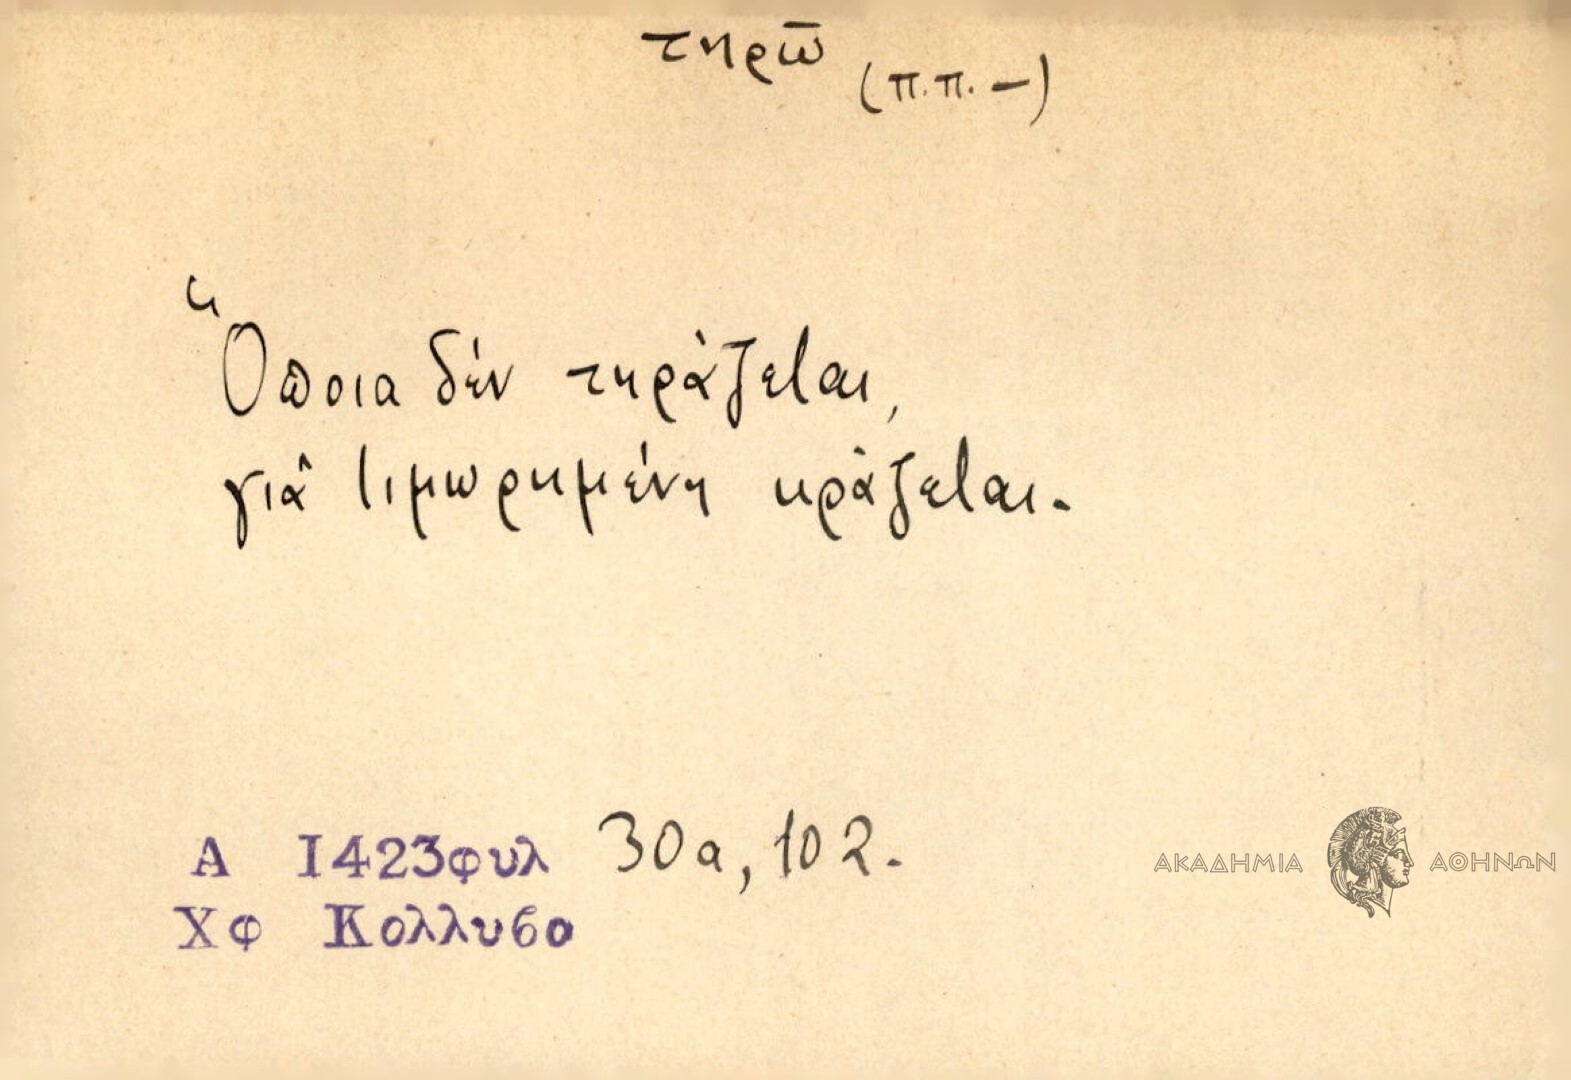 τηρῶ (π.π. —)
Ὅποια δέν τηράζεται,
γιὰ τιμωρημένη κράζεται.
Α 1423φυλ 30α, 102.
Χφ Κολλυβο
ΑΚΑΔΗΜΙΑ ΑΘΗΝΩΝ